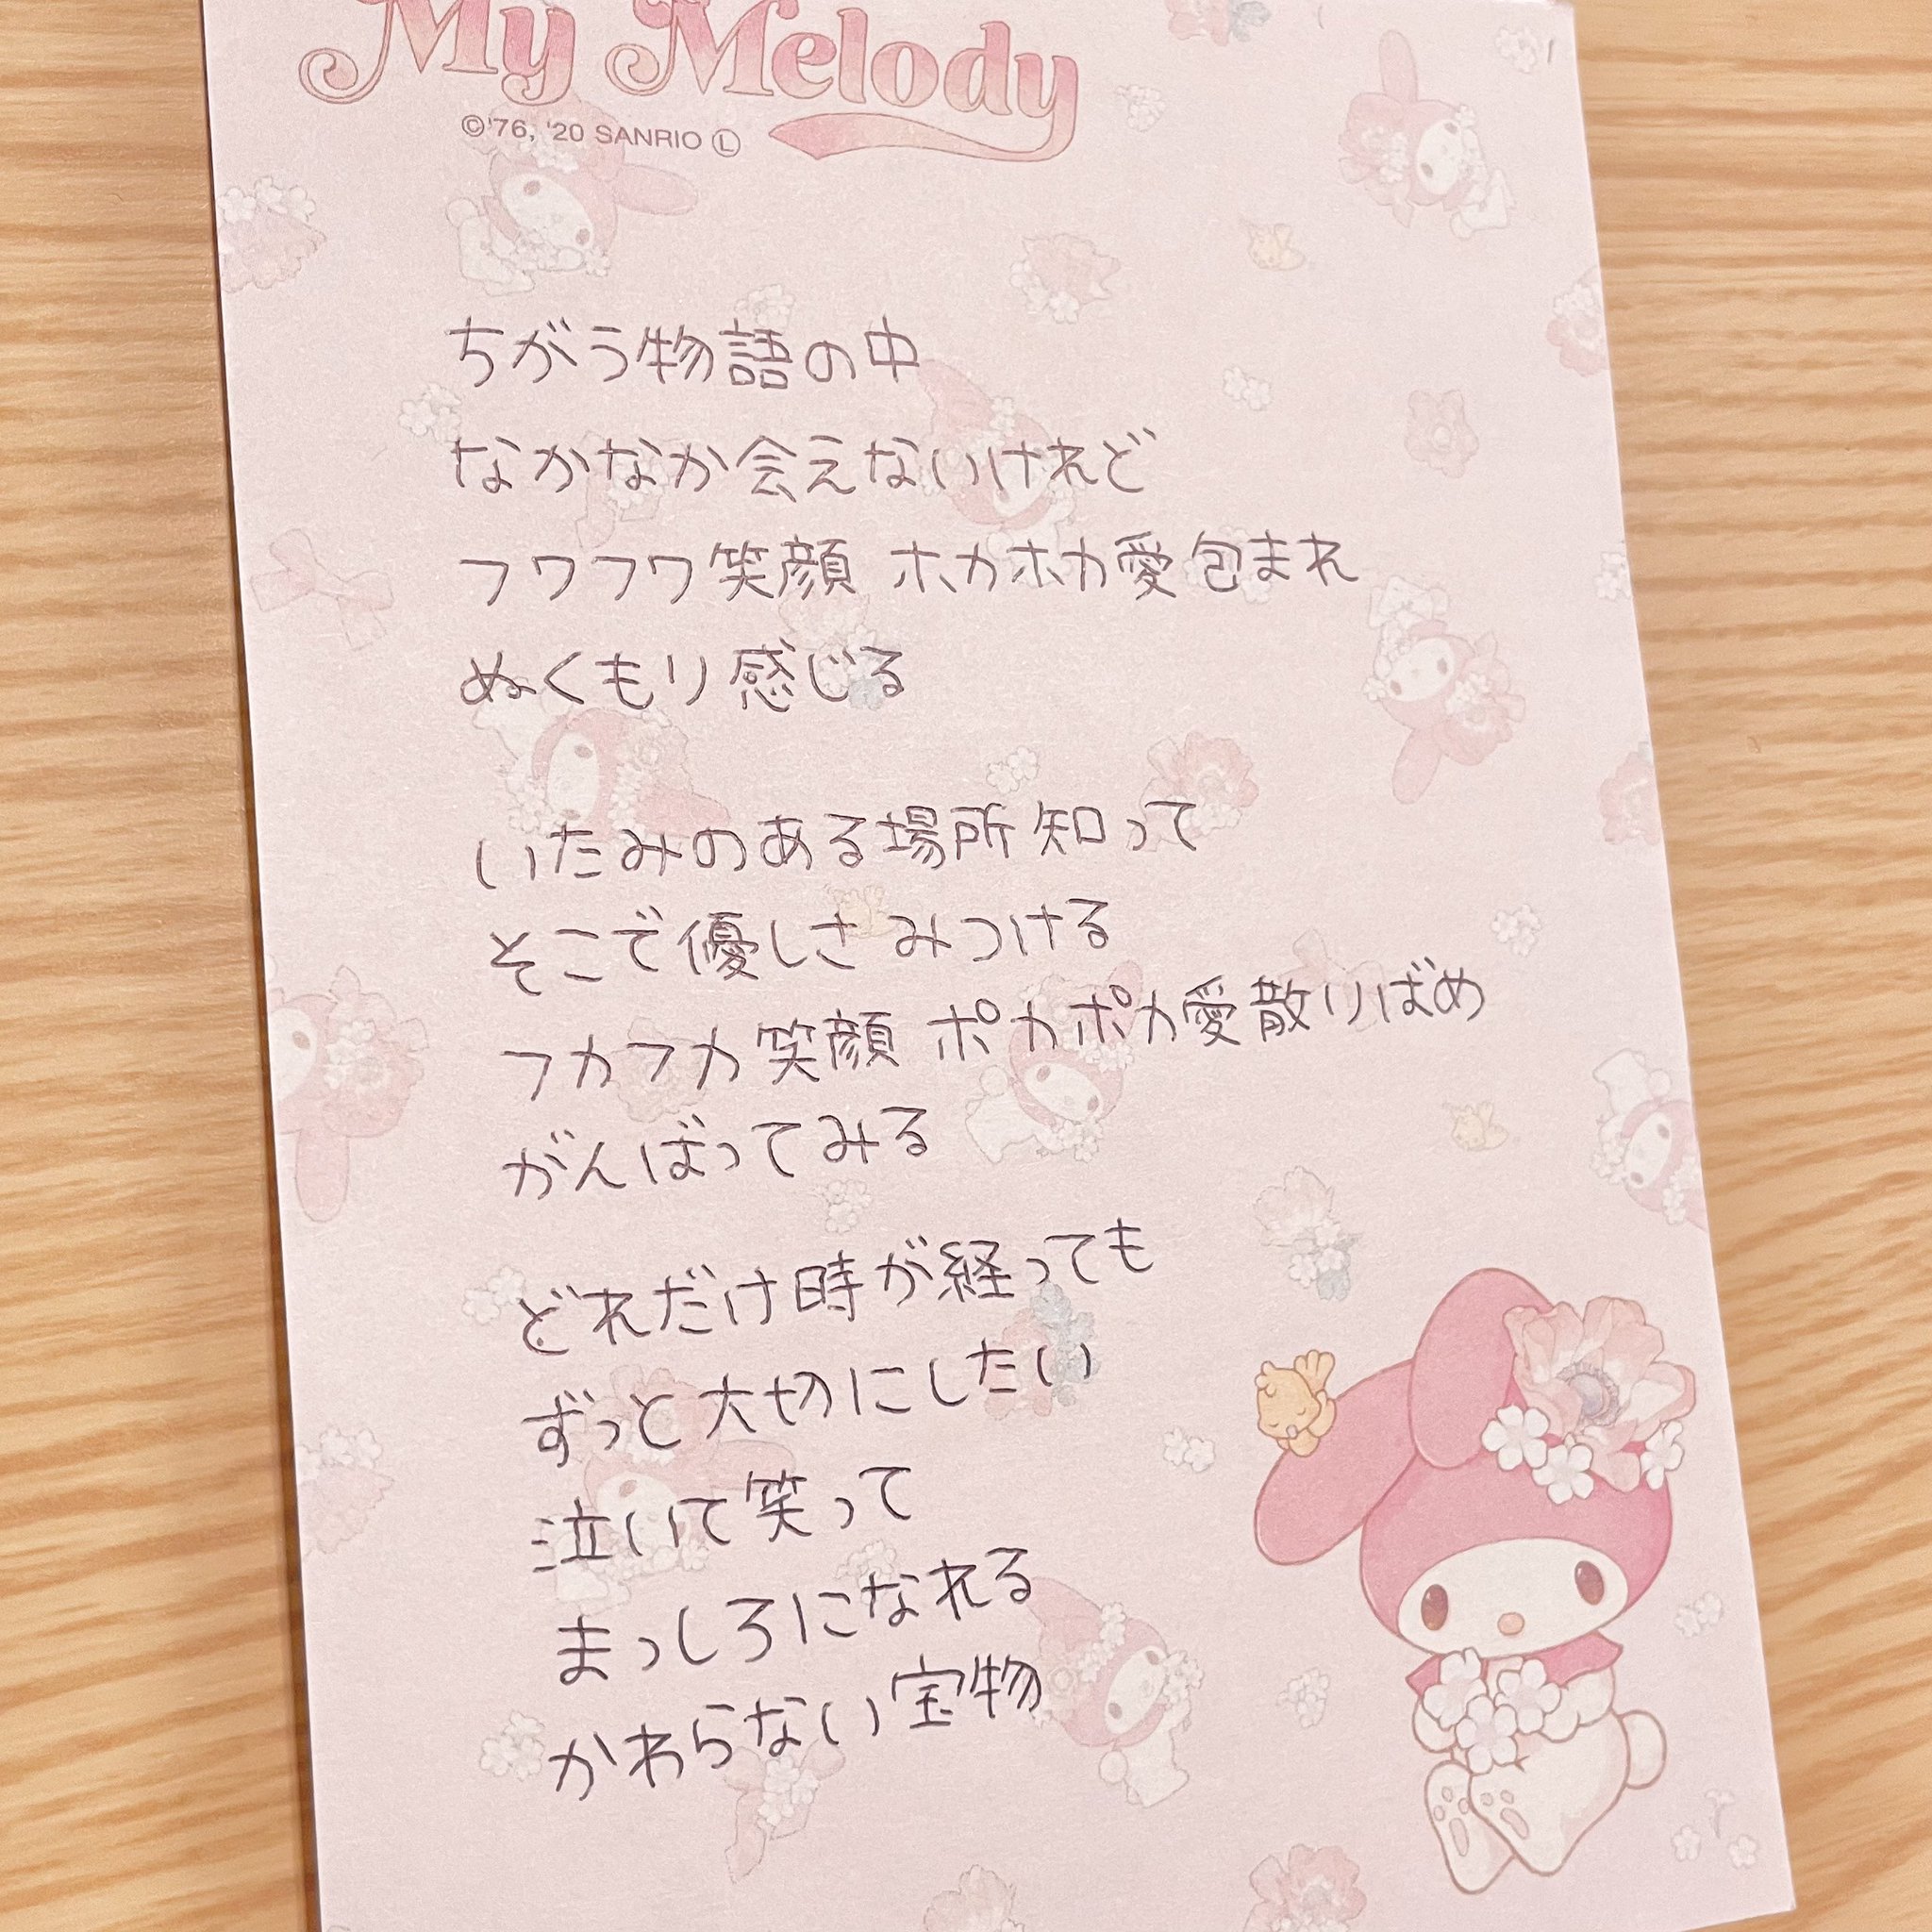 My Melody
©'76, '20 SANRIO Ⓛ
ちがう物語の中
なかなか会えないけれど
フワフワ笑顔 ホカホカ愛包まれ
ぬくもり感じる
いたみのある場所知って
そこで優しさみつける
フカフカ笑顔 ポカポカ愛散りばめ
がんばってみる
どれだけ時が経っても
ずっと大切にしたい
泣いて笑って
まっしろになれる
かわらない宝物